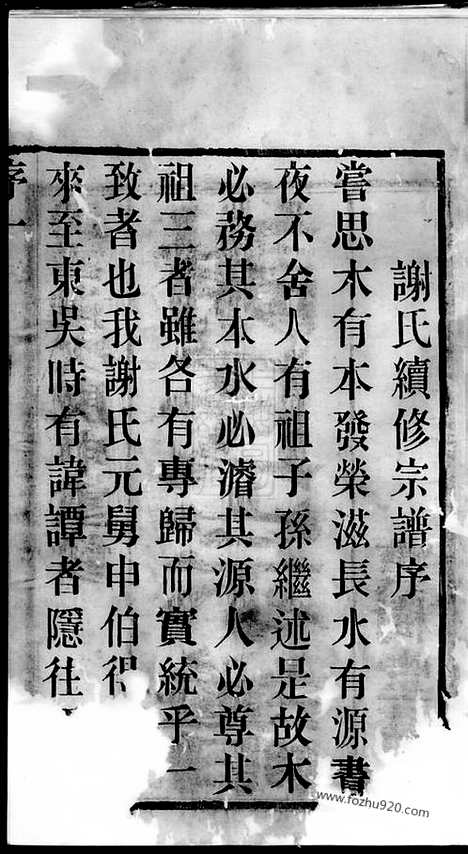 謝氏續修宗譜序
嘗思木有本發榮滋長水有源晝
夜不舍人有祖子孫繼述是故木
必務其本水必濬其源人必尊其
祖三者雖各有專歸而實統乎一
致者也我謝氏元舅申伯
來至東吳時有諱譚者隱往
序一
www.fozhu920.com